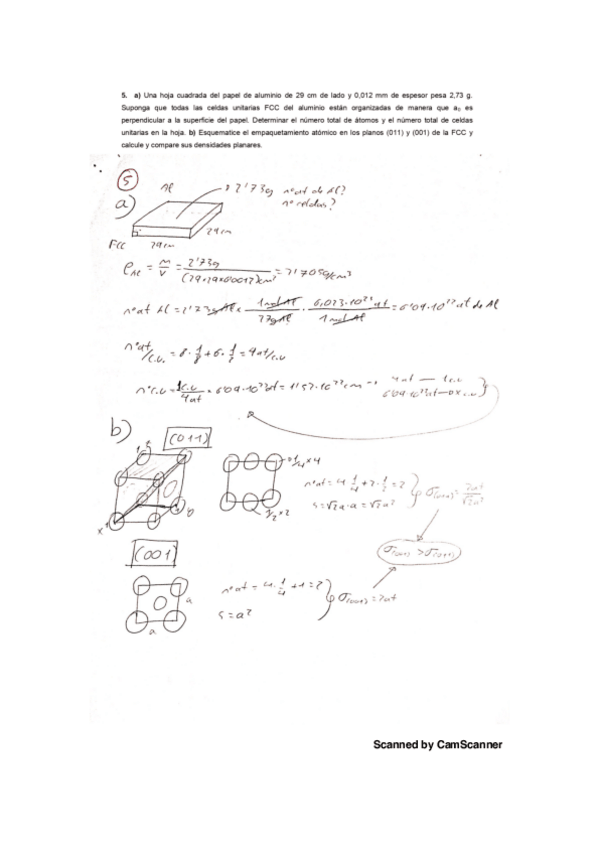 5. a) Una hoja cuadrada del papel de aluminio de 29 cm de lado y 0,012 mm de espesor pesa 2,73 g.
Suponga que todas las celdas unitarias FCC del aluminio están organizadas de manera que a₀ es
perpendicular a la superficie del papel. Determinar el número total de átomos y el número total de celdas
unitarias en la hoja. b) Esquematice el empaquetamiento atómico en los planos (011) y (001) de la FCC y
calcule y compare sus densidades planares.
5
Al 2'73g nº at de Al?
nº celdas?
a)
29cm
FCC 29cm
ρAl = m/V = 2'73g/(29·29·0'0012)cm³ = 2'705g/cm³
nº at Al = 2'73g Al × 1mol Al/27g Al · 6,023·10²³ at/1mol Al = 6'09·10²² at de Al
nº at/c.u. = 8·1/8 + 6·1/2 = 4at/c.u
nº c.u = 1c.u/4at × 6'09·10²² at = 1'52·10²² 4at — 1c.u
6'09·10²² at — x c.u
b) (011)
1/4 × 4
nº at = 4·1/4 + 2·1/2 = 2
s = √2a·a = √2a²
σ(011) = 2at/√2a²
1/2 × 2
x
(001)
σ(001) > σ(011)
nº at = 4·1/4 + 1 = 2
σ(001) = 2at
s = a²
a
a
Scanned by CamScanner